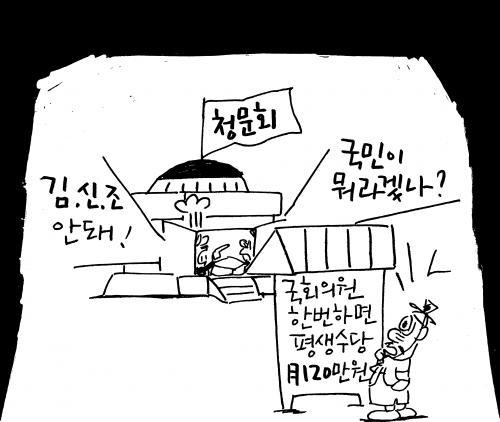 청문회
김.신.조
안돼!
국민이
뭐라겠나?
국회의원
한번하면
평생수당
月120만원